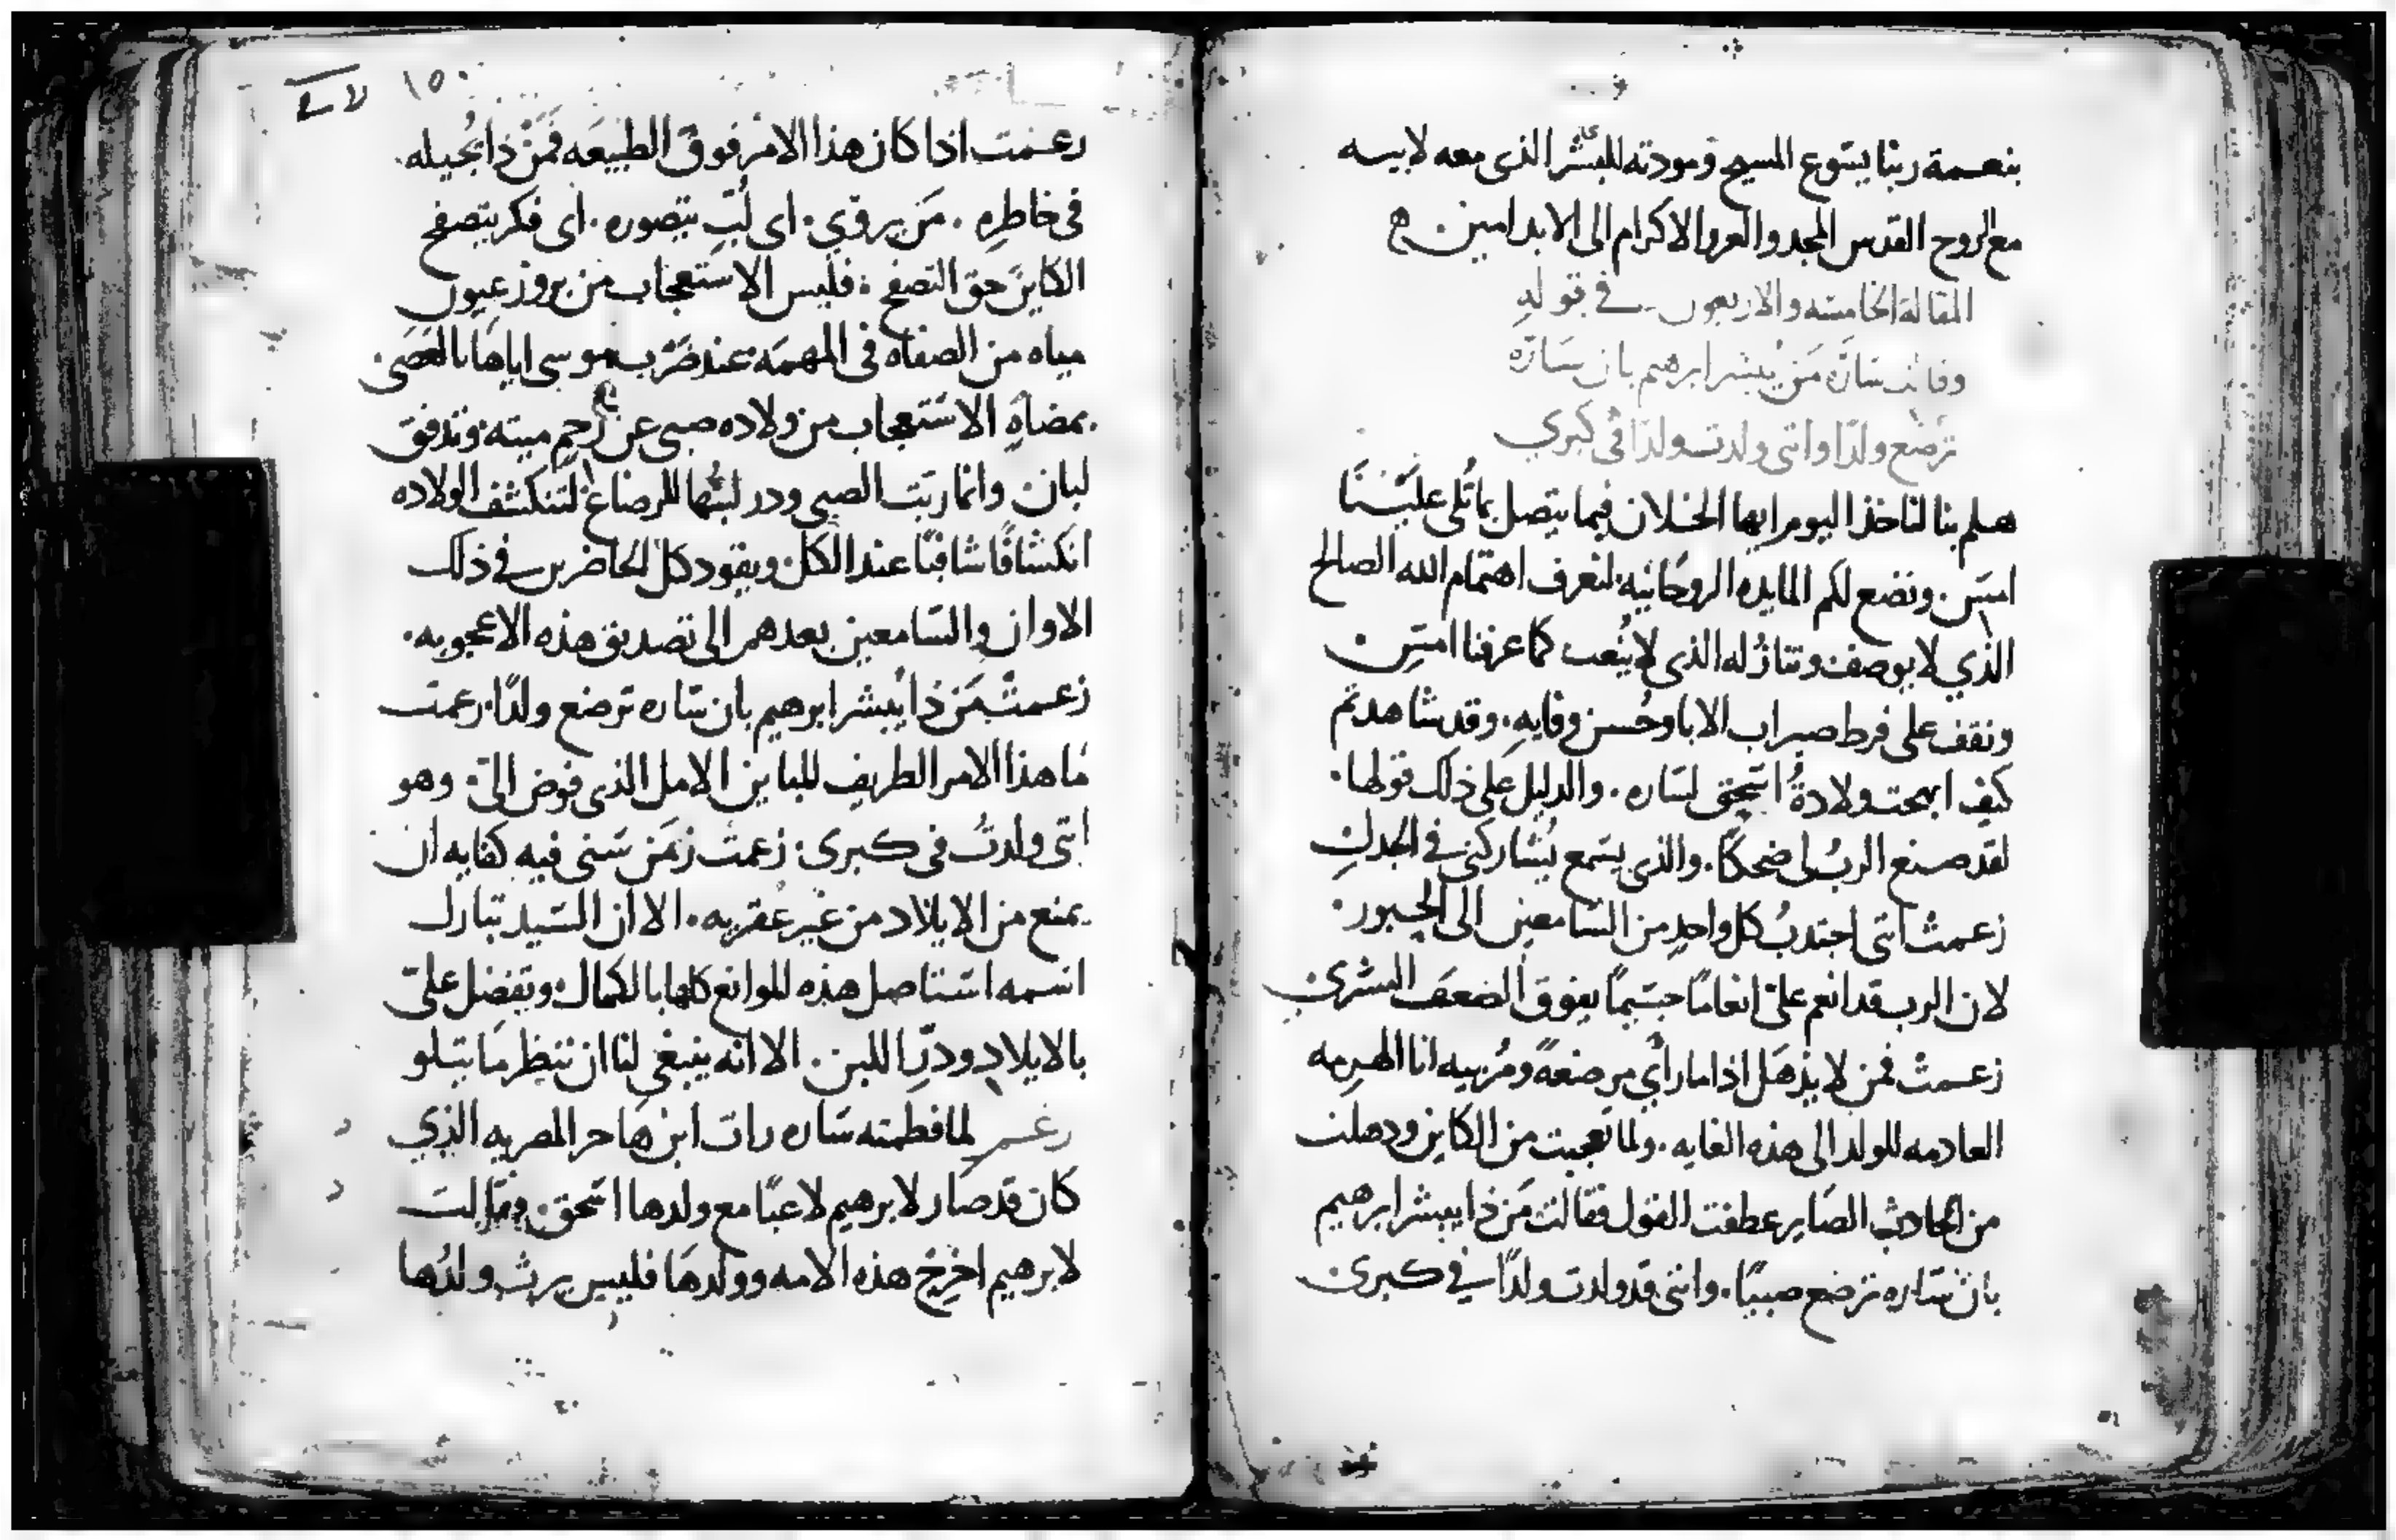 بنعمة ربنا يسوع المسيح ومودته للبشر الذى معه لابيه
مع الروح القدس المجد والعز والاكرام الى الابد امين
المقالة الخامسه والاربعون في قوله
وقالت سارّه مَن يُبشر ابرهيم بان سَارّه
تُرضع ولدًا وانني ولدت ولدًا في كبري
هلم بنا لناخذ اليوم ايها الخلان فيما يتصل بما تُلى علَيْنَا
امس. ونضع لكم المايده الروحَانيه لنعرف اهتمام الله الصالح
الذي لا يوصف وتنازُله الذى لا يُنعت كما عرفنا امس
ونقف على فرط صبر اب الابا وحُسن وفايهِ. وقد شاهدتم
كيف ابهجت ولادةُ اسحق لساره. والدليل على ذلك قولها.
لقد صنع الربُ لى ضحكًا. والذى يسمع يُشاركنى في الجدل
زعمت اننى اجتدبُ كل واحدٍ من السامعين الى الحبور.
لان الرب قد انعم علىّ انعامًا جسيمًا يفوق الضعف البشرى
زعمت فمن لا يذهَل اذا ما رأي مرضعةً ومُربيه انا الهرمه
العادمه للولد الى هذه الغايه. ولما تعجبت من الكاين ودهلت
من الحادث الصَاير عطفت القول فقالت مَن ذا يبشر ابرهيم
بان سَاره ترضع صبيًا. واننى قد ولدت ولدًا في كبرى
١٥
زعمت اذا كان هذا الامر فوق الطبيعَه فمَنْ ذا يُحيله.
فى خاطرهِ. مَن يرقي. اى لُبٍ يتصوره. اى فكر يتصفح
الكاين حَق التصفح: فليس الاستعجاب من بروز عيون
مياه من الصفاه فى المهمَه عند ضَرْب موسى اياهَا بالعَصَى
بمضاهِ الاستعجاب من ولاده صبى عن رَحِمٍ ميته وتدفق
لبان. وانما ربَت الصبى ودر لبنُها للرضاع لتنكشف الولاده
انكشافًا شافيًا عند الكل. ويقود كل الحاضرين في ذلك
الاوان والسَامعين بعدهم الى تصديق هذه الاعجوبه.
زعمت مَن ذا يُبشر ابرهيم بان سَاره ترضع ولدًا. زعمت
مَا هذا الامر الطريف المباين الامل الذى فوض الىّ. وهو
اننى ولدتُ فى كبرى: زعمت زمَن سَنى فيه كفايه ان
يمنع من الايلاد من غير عُقر به. الا ان السَيد تبارك
اسمه استاصل هذه الموانع كلها بالكمال وتفضل علىّ
بالايلادِ ودرّ اللبن. الا انه ينبغي لنا ان ننظر مَا يتلو
زعم لما فطمته سَاره رات ابن هَاجر المصريه الذِي
كان قد صَار لابرهيم لاعبًا مع ولدها اسحق. وقالت
لابرهيم اخرِجْ هذه الامه وولدهَا فليس يرث ولدُها